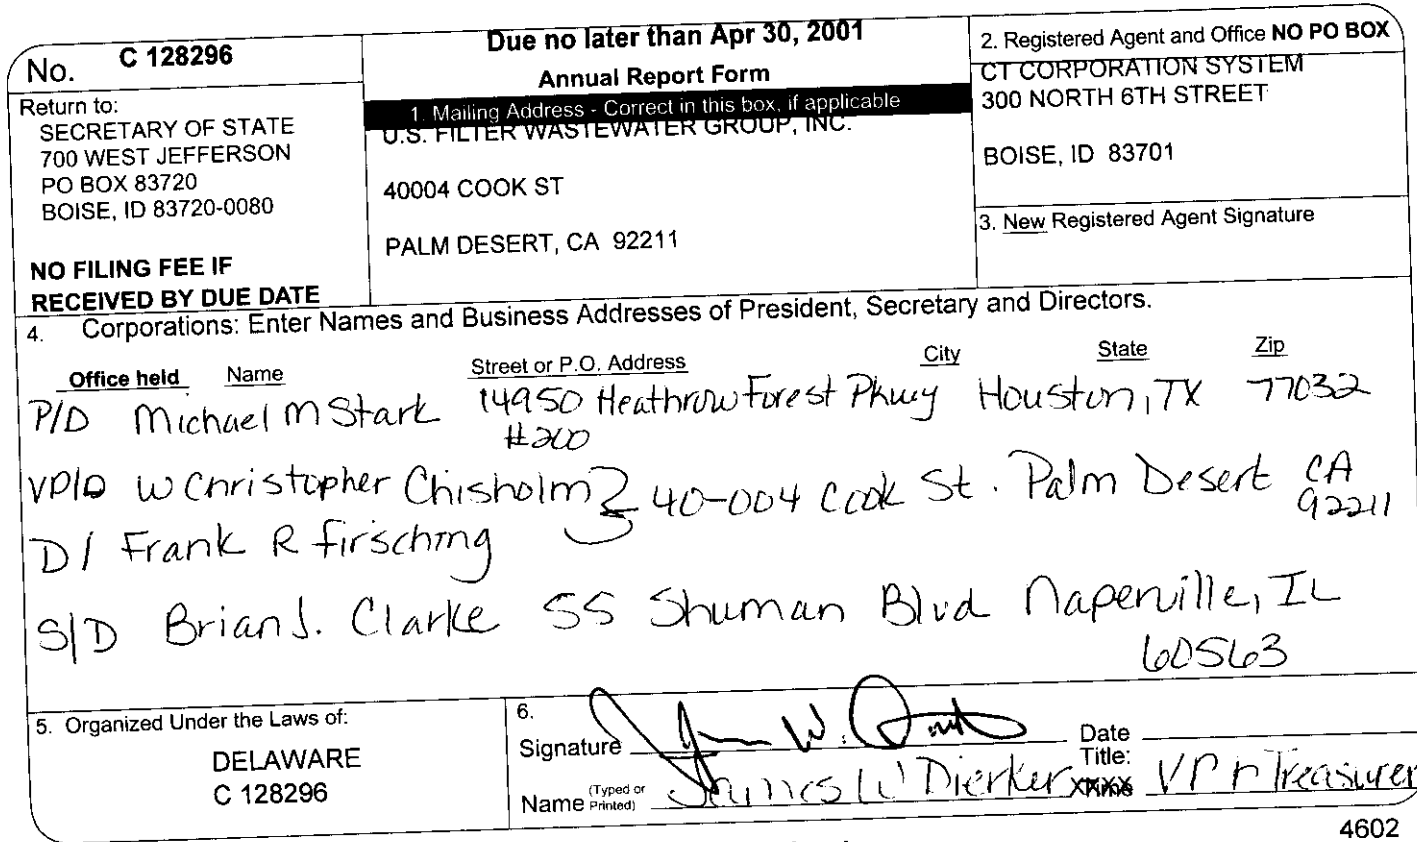 No. C 128296
Return to:
SECRETARY OF STATE
700 WEST JEFFERSON
PO BOX 83720
BOISE, ID 83720-0080
NO FILING FEE IF
RECEIVED BY DUE DATE
Due no later than Apr 30, 2001
Annual Report Form
1. Mailing Address - Correct in this box, if applicable
U.S. FILTER WASTEWATER GROUP, INC.
40004 COOK ST
PALM DESERT, CA 92211
2. Registered Agent and Office NO PO BOX
CT CORPORATION SYSTEM
300 NORTH 6TH STREET
BOISE, ID 83701
3. New Registered Agent Signature
4. Corporations: Enter Names and Business Addresses of President, Secretary and Directors.
Office held Name Street or P.O. Address City State Zip
P/D Michael M Stark 14950 Heathrow Forest Pkwy Houston, TX 77032
#200
VP/D W Christopher Chisholm 40-004 Cook St. Palm Desert CA
92211
D/ Frank R Firsching
S/D Brian J. Clarke 55 Shuman Blvd Naperville, IL
60563
5. Organized Under the Laws of:
DELAWARE
C 128296
6.
Signature James W. Dierker Date
Title:
Name (Typed or Printed) James W Dierker VP & Treasurer
4602